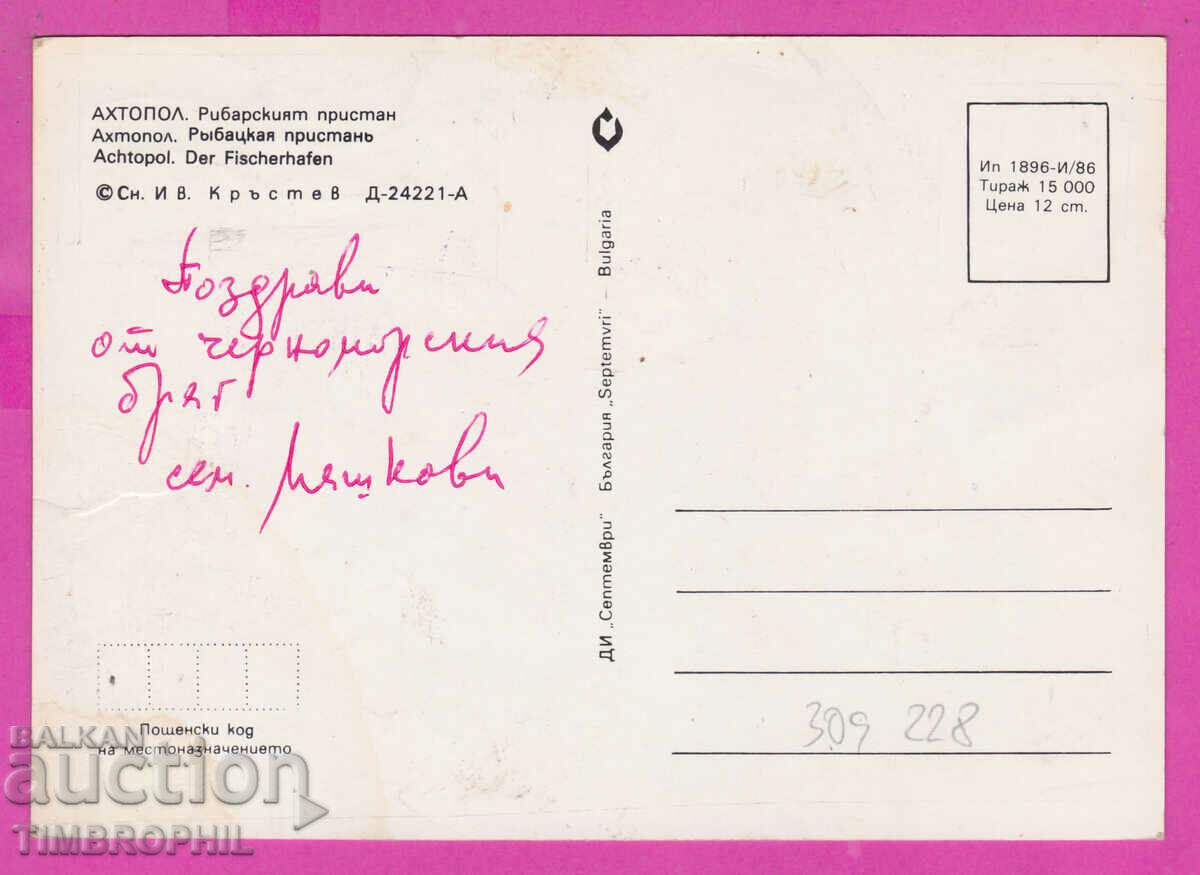 АХТОПОЛ. Рибарският пристан
Ахтопол. Рыбацкая пристань
Achtopol. Der Fischerhafen
©Сн. ИВ. Кръстев Д-24221-А
Поздрави
от черноморския
бряг
сем. Ляшкови
Пощенски код
на местоназначението
ДИ „Септември" България „Septemvri" – Bulgaria
Ип 1896-И/86
Тираж 15 000
Цена 12 ст.
309 228
BALKAN
auction
TIMBROPHIL